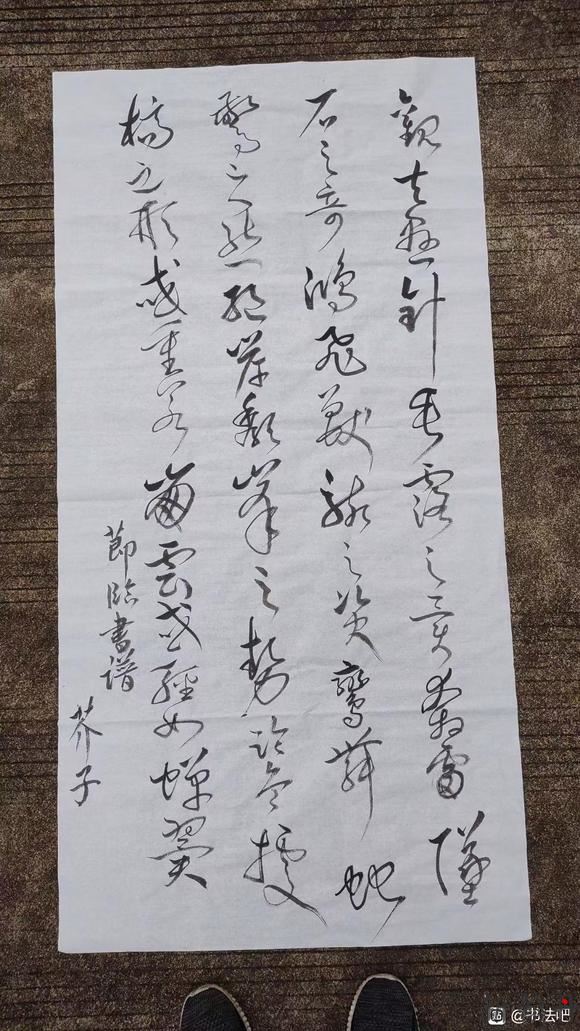 觀夫懸針垂露之異奔雷墜
石之奇鴻飛獸駭之資鸞舞蛇
驚之態絕岸頹峯之勢臨危據
槁之形或重若崩雲或輕如蟬翼
節臨書譜
芥子
@书法吧